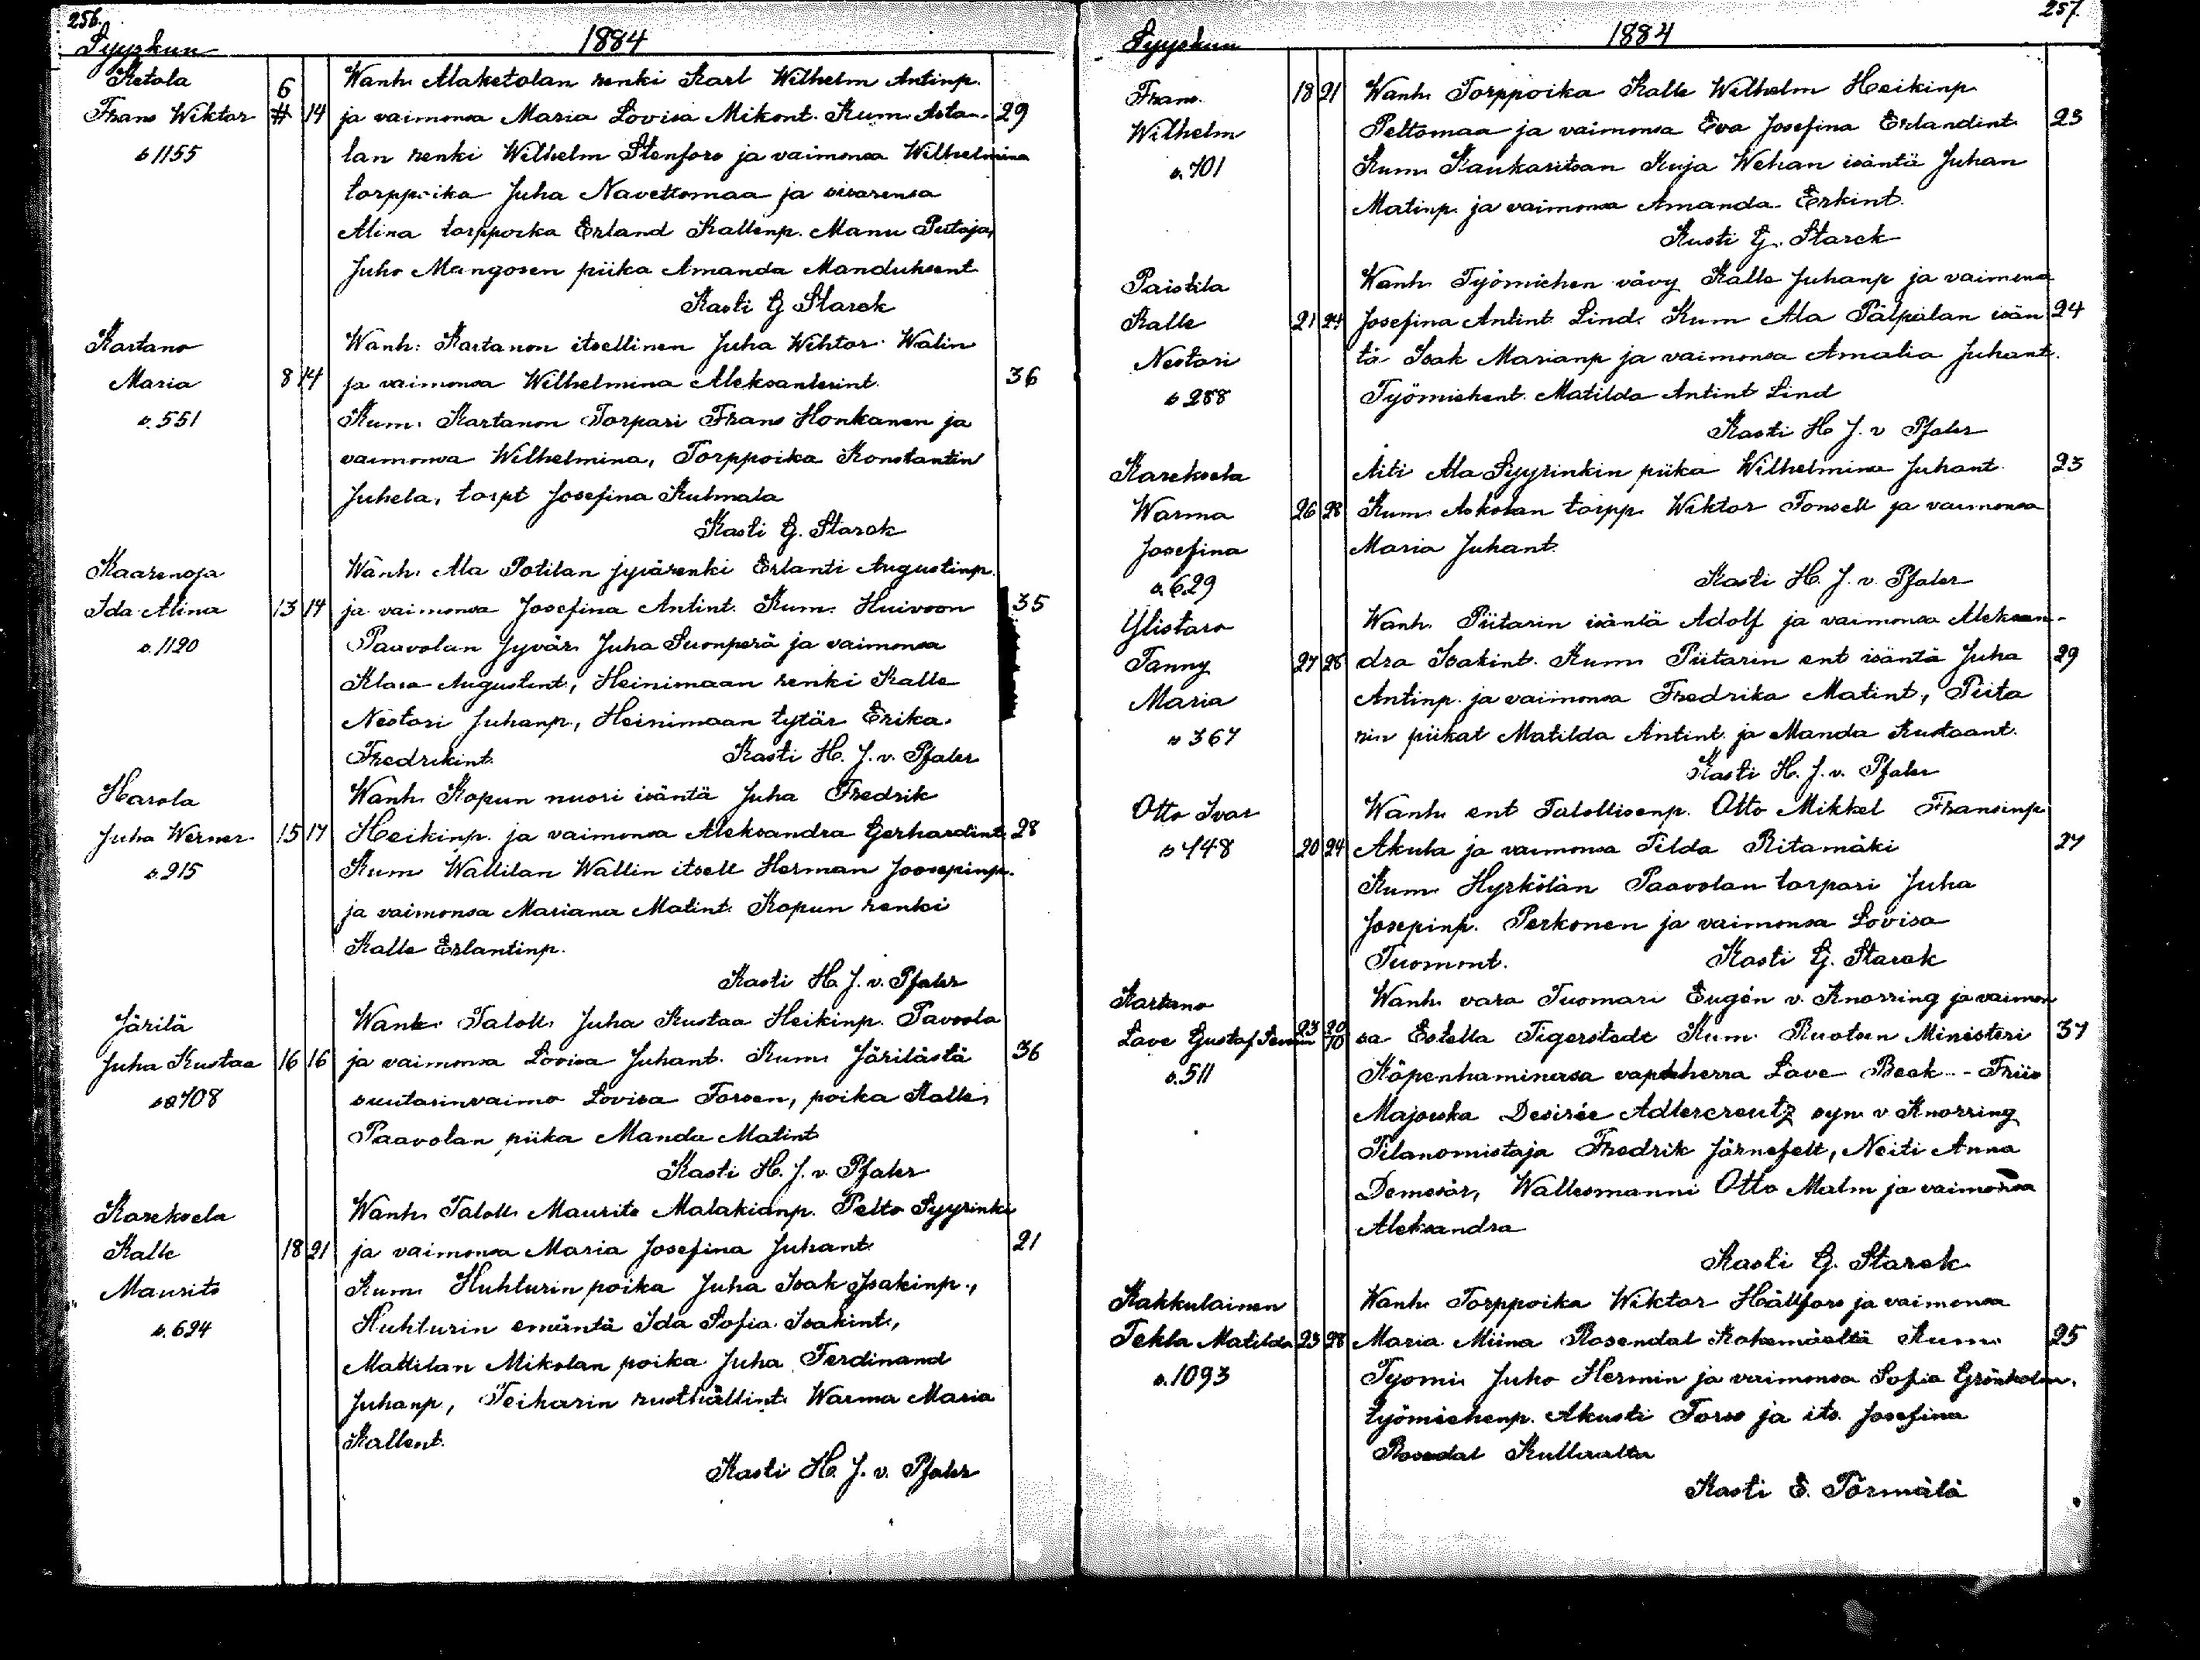 256.
Syyskun 1884
Ketola Wanh. Alaketolan renki Karl Wilhelm Antinp.
Frans Wiktor 6 14 ja vaimonsa Maria Lovisa Mikont. Kum. Asta- 29
s 1155 lan renki Wilhelm Stenfors ja vaimonsa Wilhelmina
torppoika Juha Navettomaa ja sisarensa
Alina torppoika Erland Kallenp. Manu
Juho Mangosen piika Amanda Manduksent
Kasti G Starck
Kartano Wanh. Kartanon itsellinen Juha Wihtor Walin
Maria 8 14 ja vaimonsa Wilhelmina Aleksanterint. 36
s. 551 Kum. Kartanon Torpari Frans Honkanen ja
vaimonsa Wilhelmina, Torppoika Konstantin
Juhela, torpt Josefina Kulmala
Kasti G. Starck
Kaarenoja Wanh. Ala Potilan jyvärenki Erlanti Augustinp.
Ida Alina 13 14 ja vaimonsa Josefina Antint. Kum. Huivoon 35
s. 1120 Paavolan Jyvär. Juha Suonperä ja vaimonsa
Klara Augustint, Heinimaan renki Kalle
Nestori Juhanp., Heinimaan tytär Erika
Fredrikint. Kasti H. J. v. Pfaler
Harola Wanh. Kopun nuori isäntä Juha Fredrik
Juha Werner 15 17 Heikinp. ja vaimonsa Aleksandra Gerhardint. 28
s. 915 Kum Wallilan Wallin itsell Herman Joosepinp.
ja vaimonsa Mariana Matint. Kopun renki
Kalle Erlantinp.
Kasti H. J. v. Pfaler
Järilä Wanh. Taloll. Juha Kustaa Heikinp. Pavoola
Juha Kustaa 16 16 ja vaimonsa Lovisa Juhant. Kum. Järilästä 36
s 708 suutarinvaimo Lovisa Forsen, poika Kalle,
Paavolan piika Manda Matint
Kasti H. J. v. Pfaler
Kareksela Wanh. Taloll. Maurits Malakianp. Pelto Syyrinki
Kalle 18 21 ja vaimonsa Maria Josefina Juhant. 21
Maurits Kum. Huhturin poika Juha Isak Isakinp.,
s. 624 Huhturin emäntä Ida Sofia Isakint.,
Mattilan Mikolan poika Juha Ferdinand
Juhanp, Teikarin rusthällint. Warma Maria
Kallent.
Kasti H. J. v. Pfaler
257.
Syyskun 1884
Frans 18 21 Wanh. Torppoika Kalle Wilhelm Heikinp
Wilhelm Peltomaa ja vaimonsa Eva Josefina Erlandint 23
s. 701 Kum. Kaukaritsan Kuja Wehan isäntä Juhan
Matinp. ja vaimonsa Amanda Erkint.
Kasti G. Starck
Paistila Wanh. Työmiehen vävy Kalle Juhanp ja vaimonsa
Kalle 21 24 Josefina Antint. Lind. Kum Ala Pälpälän isän 24
Nestori tä Isak Marianp ja vaimonsa Amalia Juhant.
s 288 Työmiehent. Matilda Antint Lind
Kasti H J. v Pfaler
Kareksela Äiti Ala Syyrinkin piika Wilhelmina Juhant. 23
Warma 26 28 Kum. Askolan torpp. Wiktor Fonsell ja vaimonsa
Josefina Maria Juhant.
s. 629 Kasti H. J. v. Pfaler
Ylistaro Wanh. Piitarin isäntä Adolf ja vaimonsa Aleksan-
Fanny 27 28 dra Isakint. Kum. Piitarin ent isäntä Juha 29
Maria Antinp. ja vaimonsa Fredrika Matint, Piita
s 367 rin piikat Matilda Antint. ja Manda Kustaant.
Kasti H. J. v. Pfaler
Otto Ivar Wanh. ent Talollisenp. Otto Mikkel Fransinp
s 448 20 24 Akula ja vaimonsa Tilda Ritamäki 27
Kum. Hyrkölän Paavolan torpari Juha
Josepinp. Perkonen ja vaimonsa Lovisa
Tuomont. Kasti G. Starck
Kartano Wanh. vara Tuomari Eugén v. Knorring ja vaimon
Love Gustaf 23 20/10 sa Estella Tigerstedt Kum. Ruotsin Ministeri 37
s. 511 Köpenhaminassa vapaherra Love Beck - Friis
Majorska Desirée Adlercreutz syn. v Knorring
Tilanomistaja Fredrik Järnefelt, Neiti Anna
Demosär, Wallesmanni Otto Malm ja vaimonsa
Aleksandra
Kasti G. Starck
Kakkulainen Wanh. Torppoika Wiktor Hällfors ja vaimonsa
Tekla Matilda 23 28 Maria Miina Rosendal Kokemäeltä Kum. 25
s. 1093 Työmi. Juho Hermin ja vaimonsa Sofia Grönholm,
työmiehenp. Akusti Forss ja its. Josefina
Rosedal Kullaalta
Kasti E. Törmälä